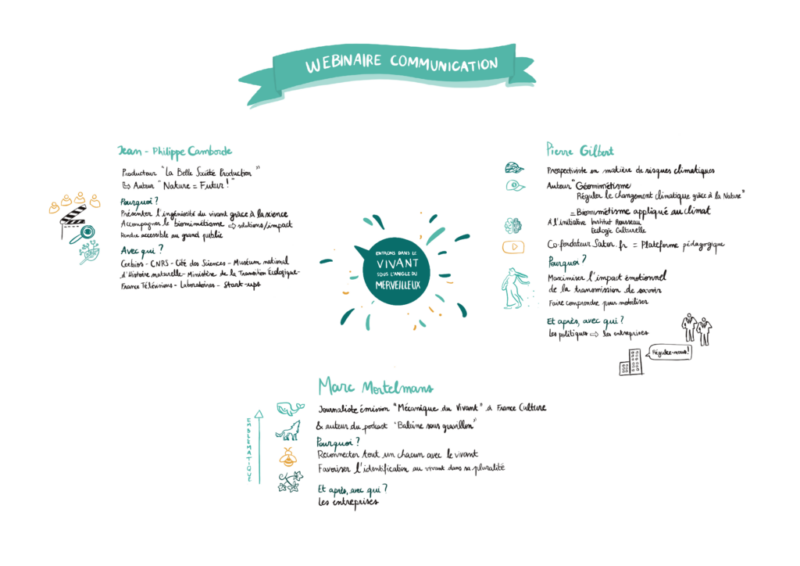 WEBINAIRE COMMUNICATION
Jean-Philippe Camborde
Producteur "La Belle Société Production"
↳ Auteur "Nature = Futur!"
Pourquoi ?
Présenter l'ingéniosité du vivant grâce à la science
Accompagner le biomimétisme ⇒ solutions/impact
Rendre accessible au grand public
Avec qui ?
Ceebios - CNRS - Cité des Sciences - Muséum national
d'Histoire naturelle - Ministère de la Transition Écologique -
France Télévisions - Laboratoires - Start-ups
ENTRONS DANS LE
VIVANT
SOUS L'ANGLE DU
MERVEILLEUX
Pierre Gilbert
Prospectiviste en matière de risques climatiques
Auteur "Géomimétisme
Réguler le changement climatique grâce à la Nature"
= Biomimétisme appliqué au climat
À l'initiative Institut Rousseau
Écologie Culturelle
Co-fondateur Sator.fr = Plateforme pédagogique
Pourquoi ?
Maximiser l'impact émotionnel
de la transmission de savoir
Faire comprendre pour mobiliser
Et après, avec qui ?
Les politiques ⇒ les entreprises
Régulez-nous!
Marc Mortelmans
Journaliste émission "Mécanique du Vivant" à France Culture
& auteur du podcast "Baleine sous gravillon"
Pourquoi ?
Reconnecter tout un chacun avec le vivant
Favoriser l'identification au vivant dans sa pluralité
Et après, avec qui ?
Les entreprises